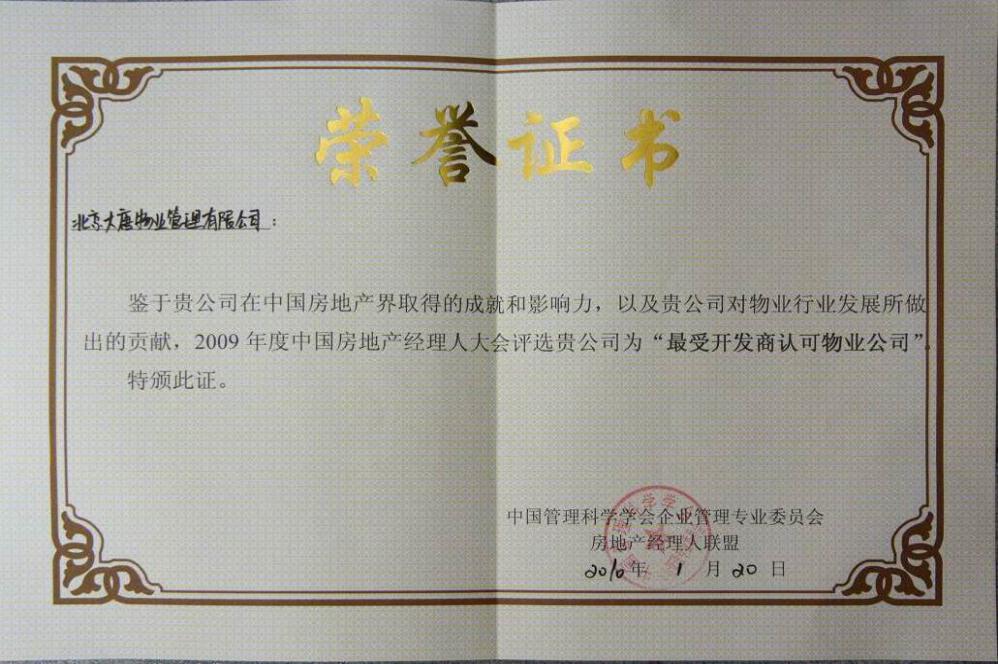 荣誉证书
北京大唐物业管理有限公司：
鉴于贵公司在中国房地产界取得的成就和影响力，以及贵公司对物业行业发展所做
出的贡献，2009 年度中国房地产经理人大会评选贵公司为“最受开发商认可物业公司”。
特颁此证。
中国管理科学学会企业管理专业委员会
房地产经理人联盟
2010年 1 月 20 日